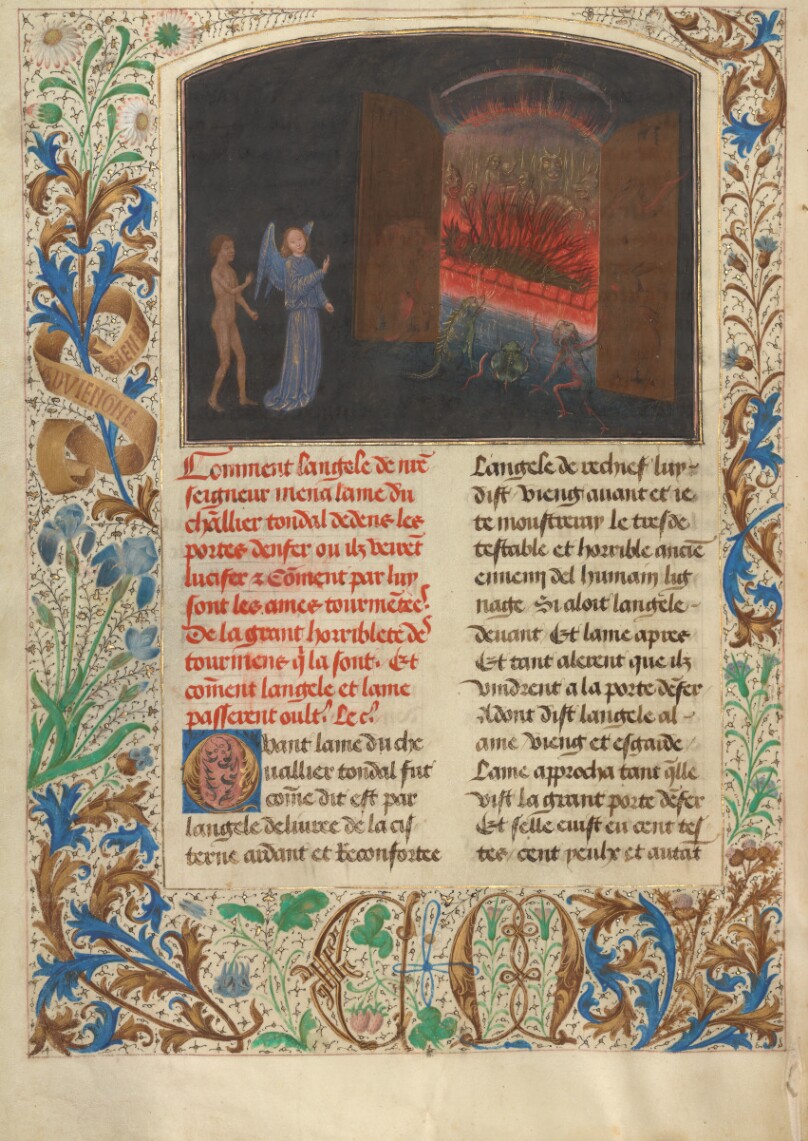 BIEN
ADVIEINGNE
Comment langele de nr̃e
seigneur mena lame du
chl̃lier tondal dedens les
portes denfer ou ilz veirēt
lucifer ⁊ Cōment par luy
sont les ames tourmētees.
De la grant horriblete des
tourmens q̃ la sont. Et
cōment langele et lame
passerent oultr̃. Le c.
Quant lame du che
uallier tondal fut
com̃e dit est par
langele deliuree de la cis
terne ardant et Reconfortee
Langele de rechief luy-
dist vieng auant et ie
te moustreray le tresde
testable et horrible ancie
ennemj del humain lig
nage Si aloit langele-
deuant Et lame apres
Et tant alerent que ilz
vindrent a la porte dēfer
Adont dist langele al-
ame vieng et esgarde
Lame approcha tant q̃lle
vist la grant porte dēfer
Et selle euist eu cent tes
tes cent yeulx et autāt
C M